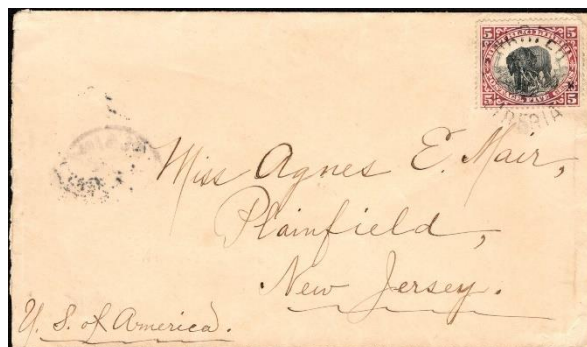 5 5
5 5
LIBERIA
Miss Agnes E. Mair,
Plainfield,
New Jersey.
U. S. of America.